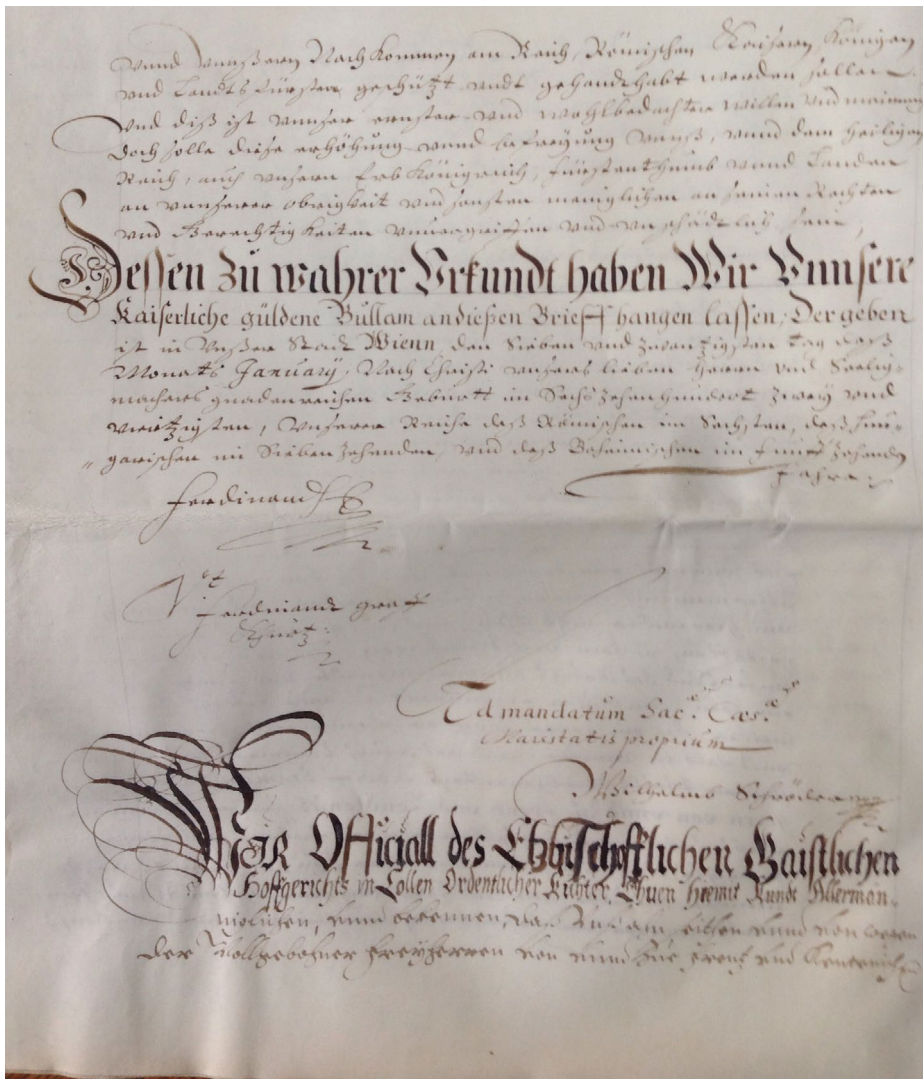 vnnd vnnßern Nachkommen am Reich, Römischen Kaißern, Königen
vnd Landts Fürsten geschützt vndt gehandthabt werden sollen
Vnd diß ist vnnser ernster vnd wohlbedachter willen vnd mainung
doch solle diese erhöhung vnnd befreyung vnnß, vnnd dem heiligen
Reich, auch vnsern Erb Königreich, Fürstenthumb vnnd Landen
an vnnserer obrigkeit vnd sonsten meniglichen an seinen Rechten
vnd Gerechtigkeiten vnuergriffen vnd vnschädtlich sein,
Dessen zu wahrer Vrkundt haben Wir Vnnsere
Kaiserliche güldene Bullam an dießen Brieff hangen lassen, Der geben
ist in Vnßer Stadt Wienn, den Sieben vnd zwanzigsten tag deß
Monats January, Nach Christi vnsers lieben Herrn vnd Seelig-
machers gnadenreichen Geburtt im Sechszehenhundert zwey vnd
viertzigsten, Vnserer Reiche deß Römischen im Sechsten, deß Hun-
" garischen im Siebenzehenden, vnd deß Behaimischen im Funffzehenden
Jahre.
Ferdinand
Vt
Ferdinandt graff
Khurtz
Ad mandatum Sac.ae Caes.ae
Maiestatis proprium
Wilhelmb Schröder
Wir Officiall des Ertzbischofflichen Gaistlichen
Hoffgerichts in Collen Ordentlicher Richter, Thuen hiemit Kundt Allerman-
niglichen, vnnd bekennen, daß
der Wollgebohrner Freyherren von vnnd zue Frentz vnd Kenterich